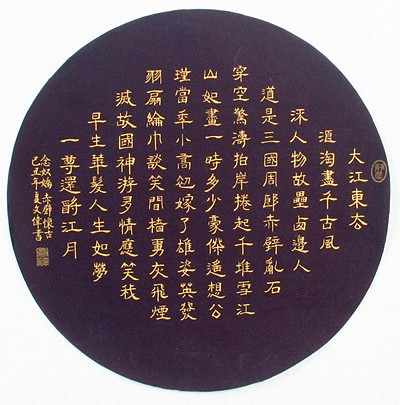 大江東去
浪淘盡千古風
流人物故壘西邊人
道是三國周郎赤壁亂石
穿空驚濤拍岸捲起千堆雪江
山如畫一時多少豪傑遙想公
瑾當年小喬初嫁了雄姿英發
羽扇綸巾談笑間檣虜灰飛煙
滅故國神游多情應笑我
早生華髮人生如夢
一尊還酹江月
念奴嬌 赤壁懷古
己丑年夏文偉書